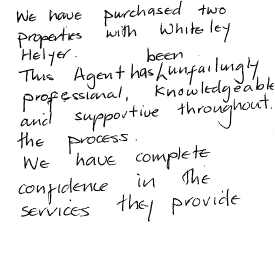 We have purchased two
properties with Whiteley
Helyer.
This Agent has been unfailingly
professional, knowledgeable
and supportive throughout
the process.
We have complete
confidence in the
services they provide